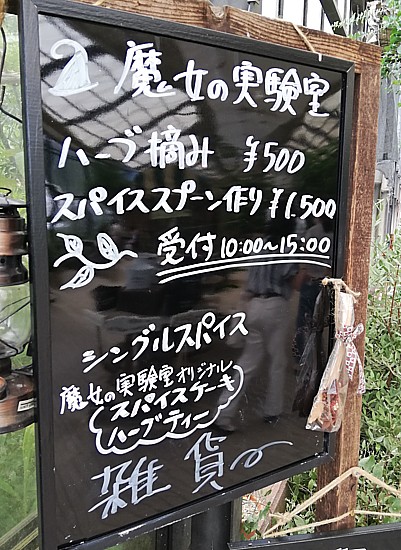 魔女の実験室
ハーブ摘み ¥500
スパイススプーン作り ¥1,500
受付 10:00~15:00
シングルスパイス
魔女の実験室オリジナル
スパイスケーキ
ハーブティー
雑貨